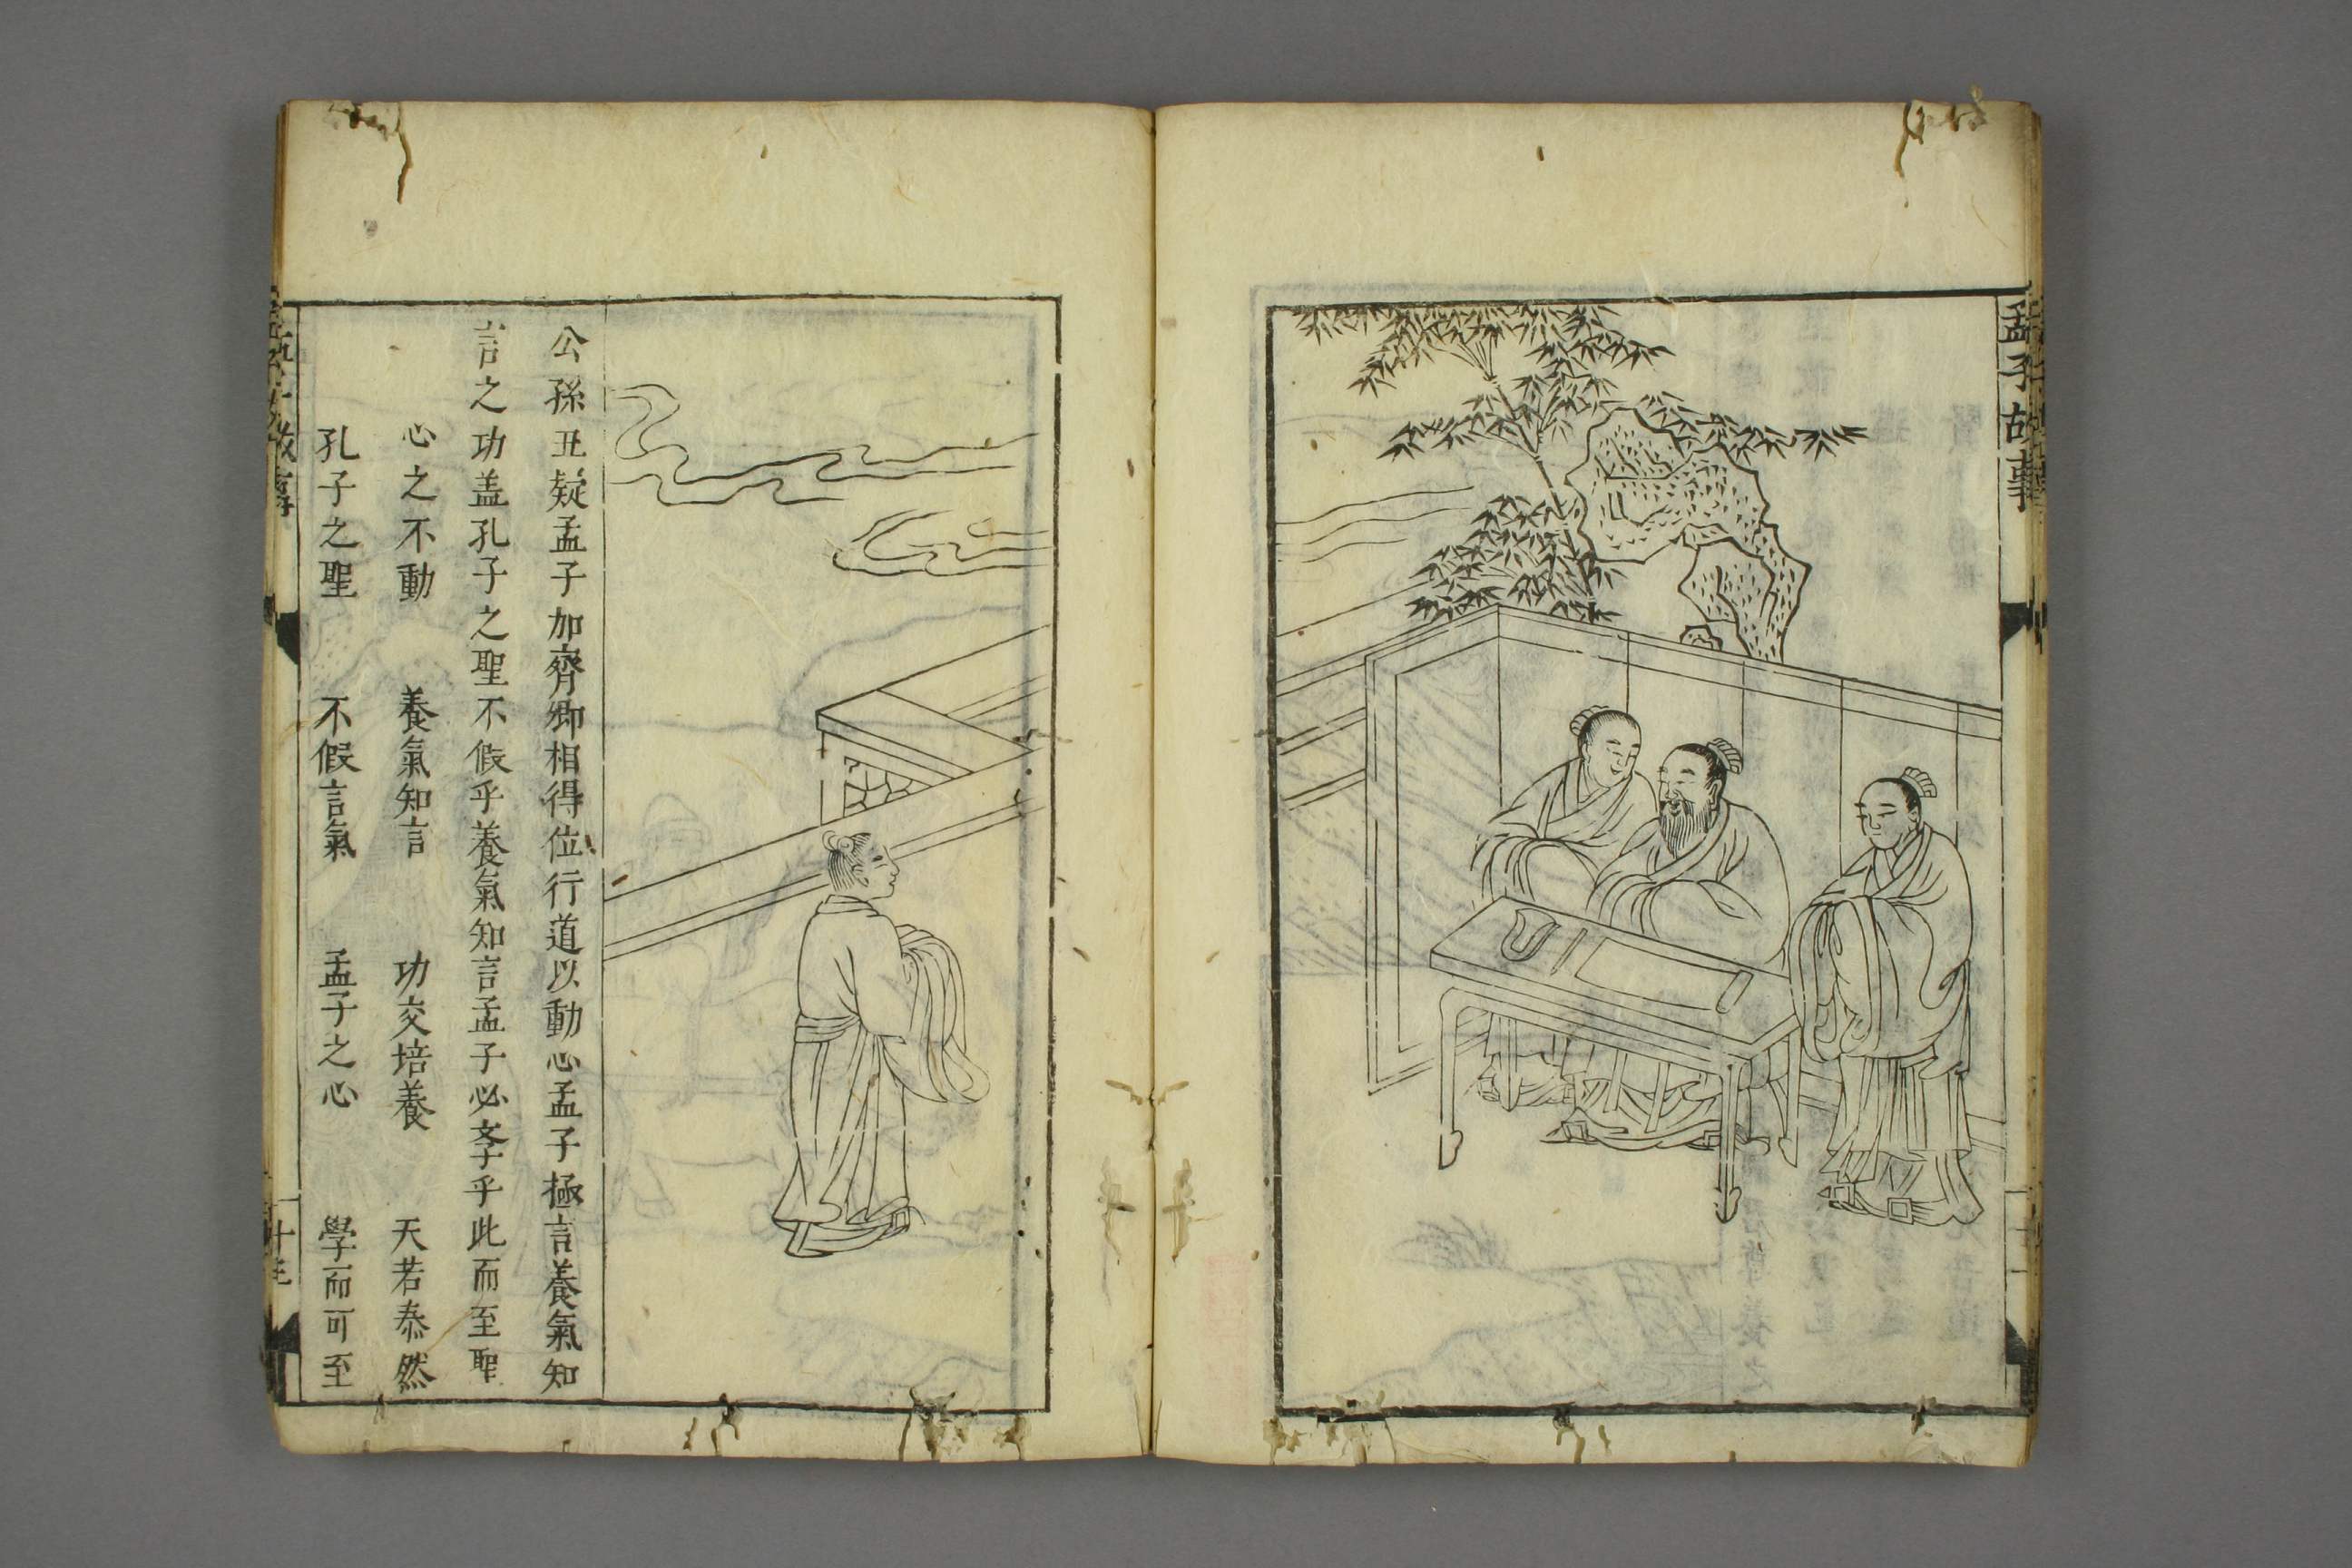 孟子故事
公孫丑疑孟子加齊卿相得位行道以動心孟子極言養氣知
言之功盖孔子之聖不假乎養氣知言孟子必斈乎此而至聖
心之不動 養氣知言 功交培養 天若泰然
孔子之聖 不假言氣 孟子之心 學而可至